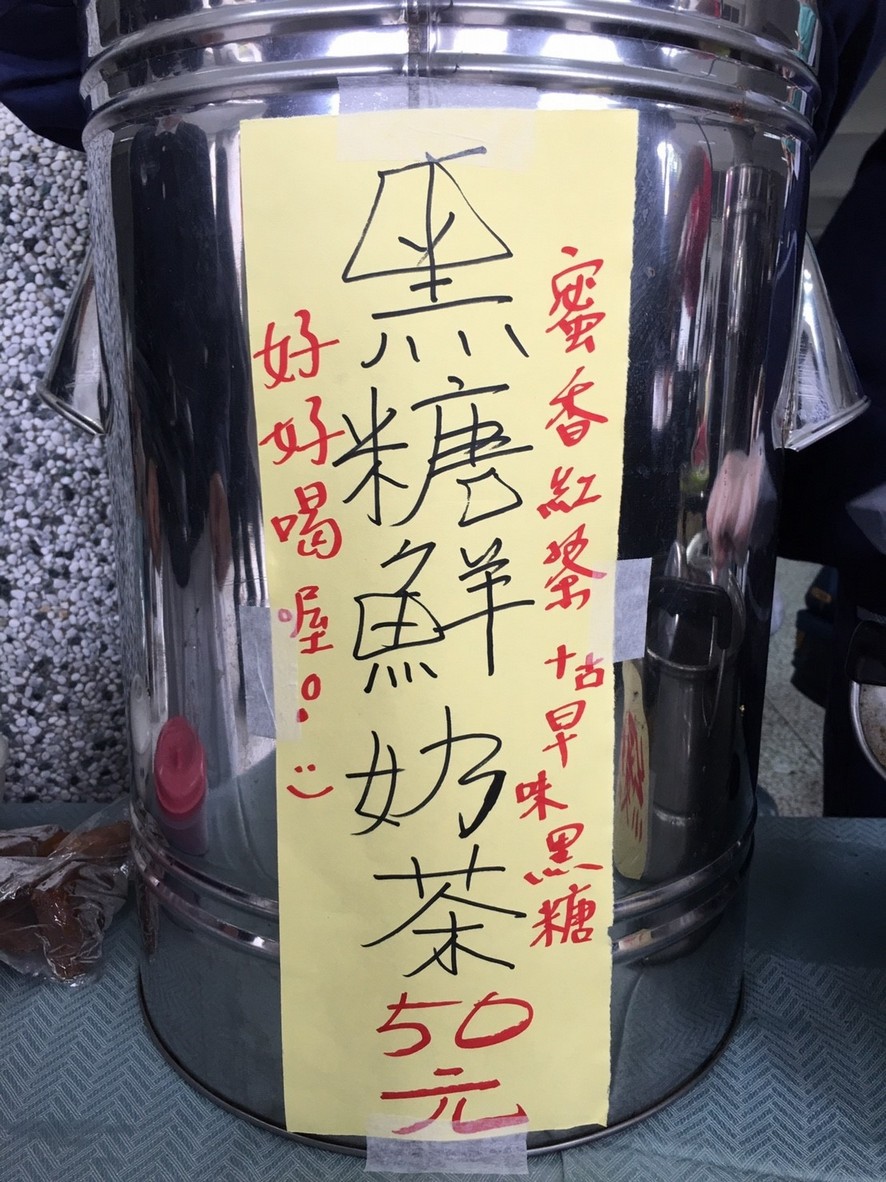 蜜香紅茶+古早味黑糖
黑糖鮮奶茶
50元
好好喝喔。:)